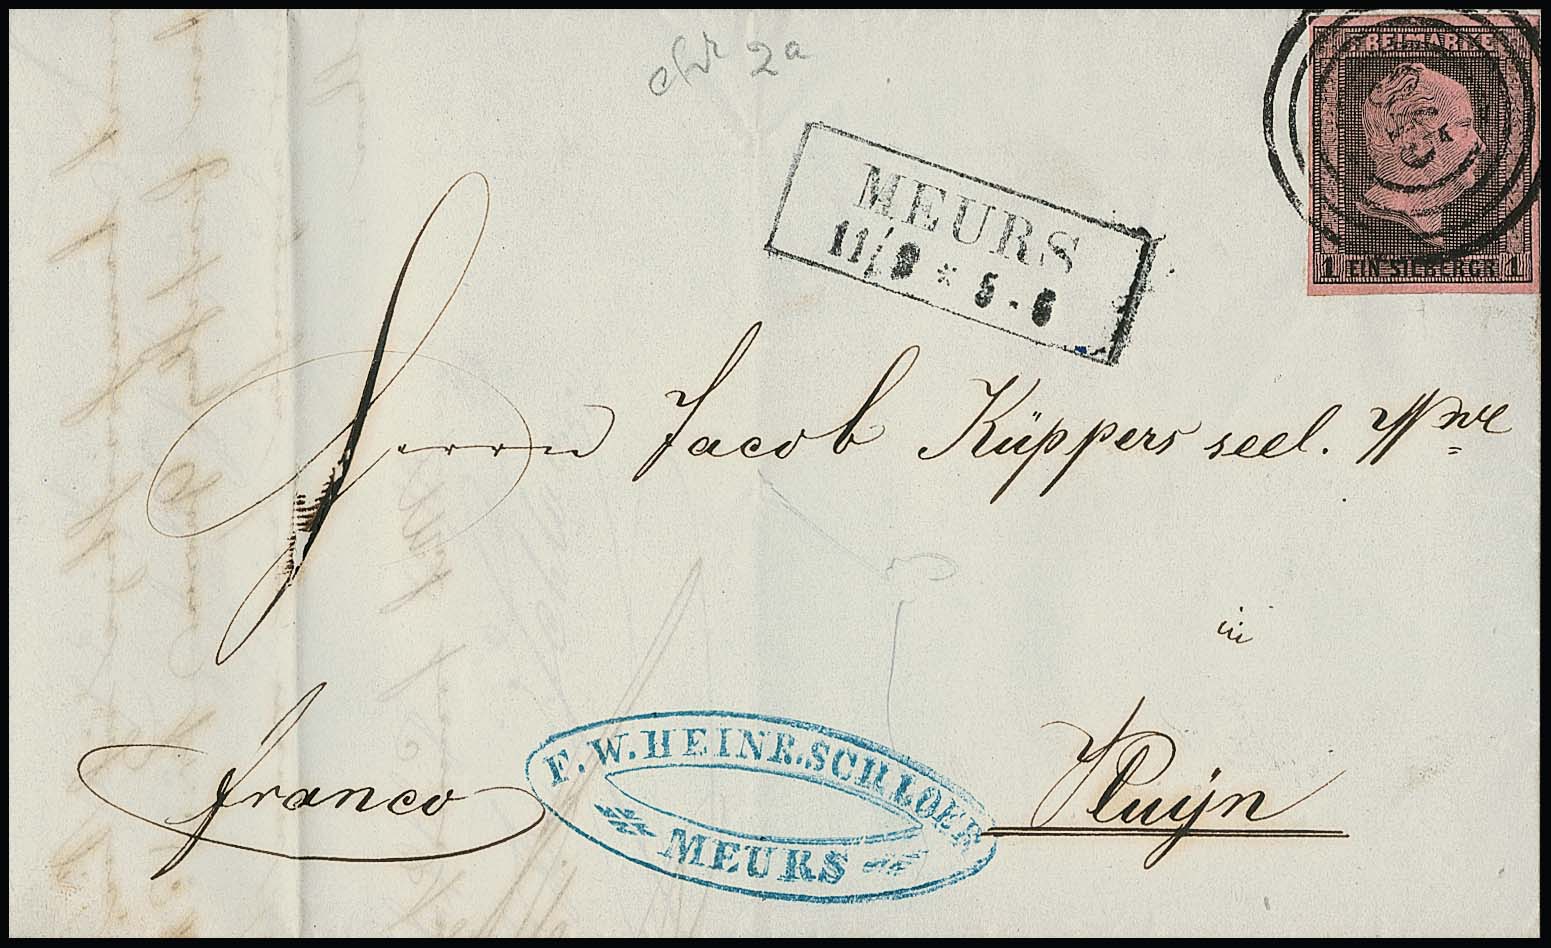 2a
FREIMARKE
1 EIN SILBERGR. 1
MEURS
11/9 * 5-6
Herrn Jacob Küppers seel. Wwe
in
franco
Vluijn
F. W. HEINR. SCHLOER
MEURS